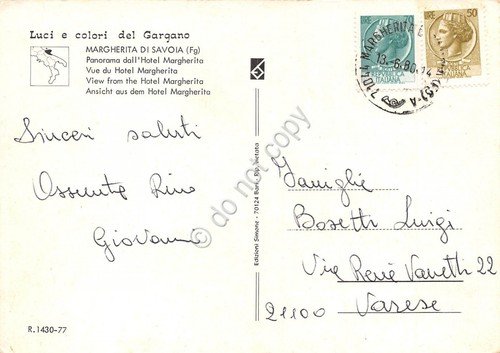 Luci e colori del Gargano
MARGHERITA DI SAVOIA (Fg)
Panorama dall'Hotel Margherita
Vue du Hotel Margherita
View from the Hotel Margherita
Ansicht aus dem Hotel Margherita
Sinceri saluti
Assunta Rino
Giovanni
R.1430-77
Edizioni Simone - 70124 Bari - Rip. vietata
do not copy
LIRE
ITALIANA
LIRE 50
71044 MARGHERITA
13-6-80.14
Famiglie
Bosetti Luigi
Via René Vanetti 22
21100 Varese